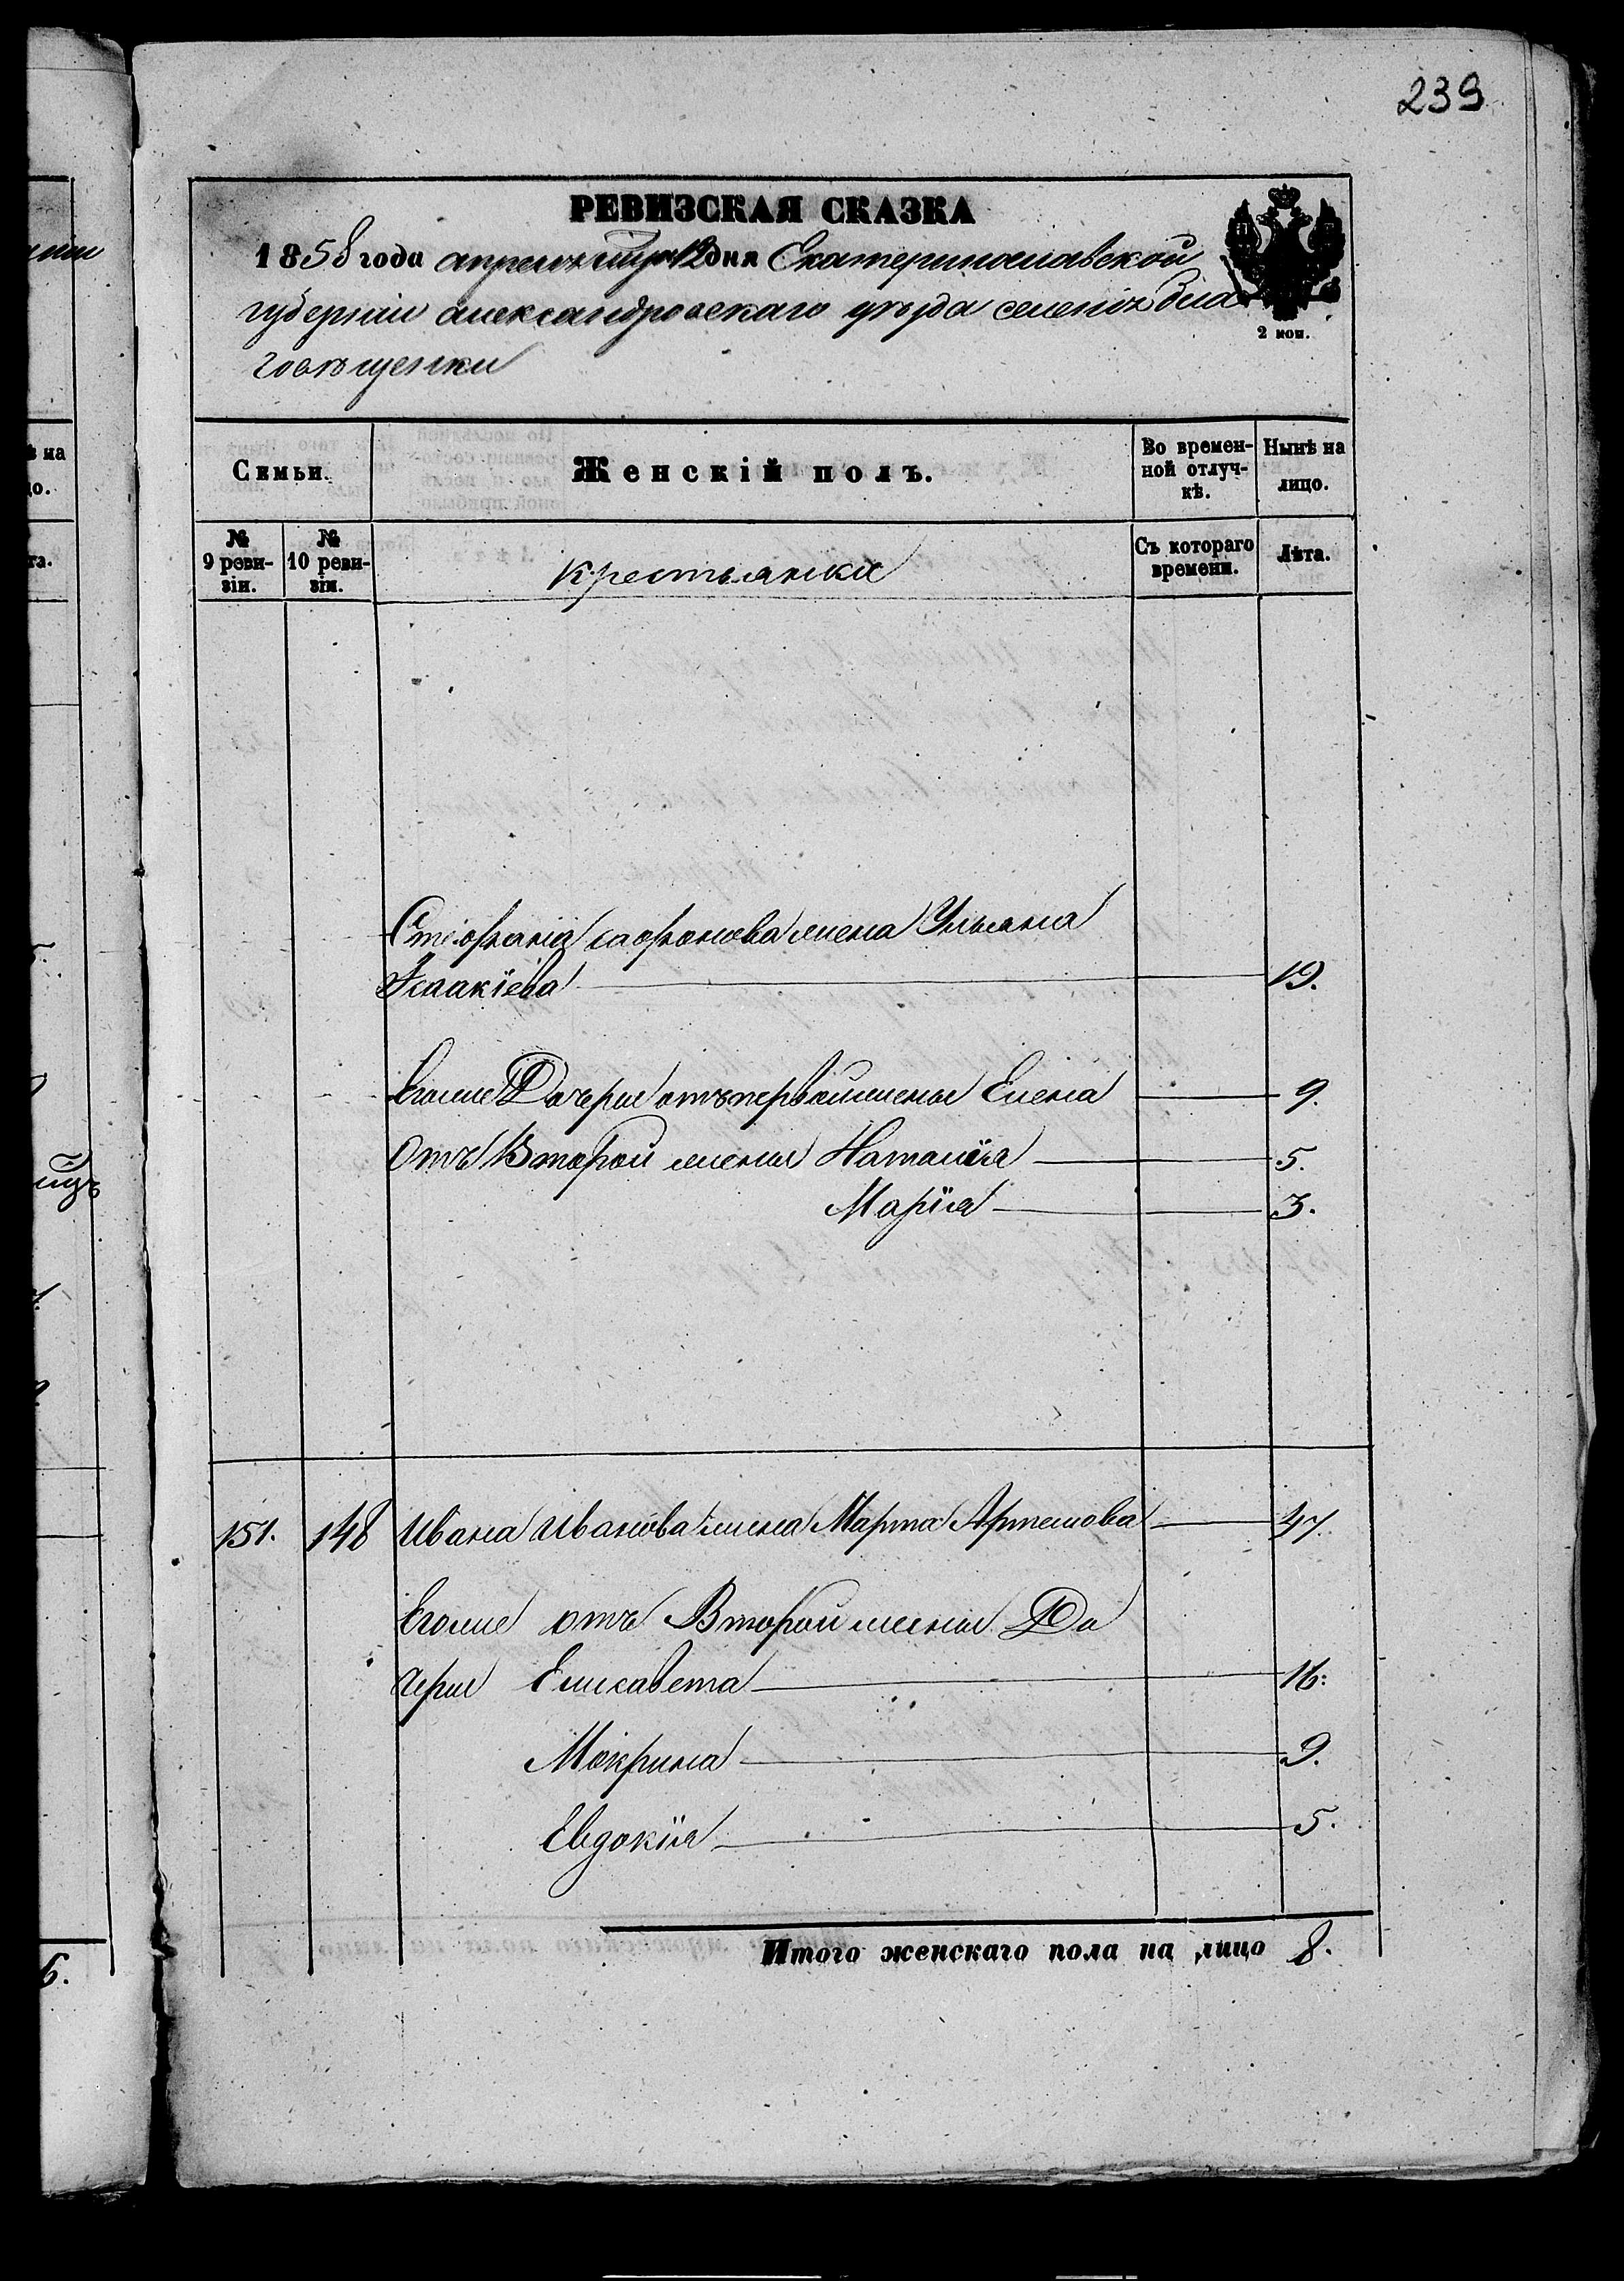 239
РЕВИЗСКАЯ СКАЗКА
1858 года апреля 12 дня Екатеринославской
губерніи александровскаго уѣзда селенія Бла
говѣщенки
2 коп.
Семьи.
Женскій полъ.
Во времен-
ной отлуч-
кѣ.
Нынѣ на
лицо.
№
9 реви-
зіи.
№
10 реви-
зіи.
крестьянки
Съ котораго
времени.
Лѣта.
Стефана Сафонова жена Ульяна
Исаакіева 19.
Егоже Дочери отъ первой жены Елена 9.
Отъ Второй жены Наталія 5.
Марія 3.
151. 148 Ивана Иванова жена Марта Артемова 47.
Егоже отъ Второй жены До
чери Елисавета 16.
Мокрина 9.
Евдокія 5.
Итого женскаго пола на лицо 8.